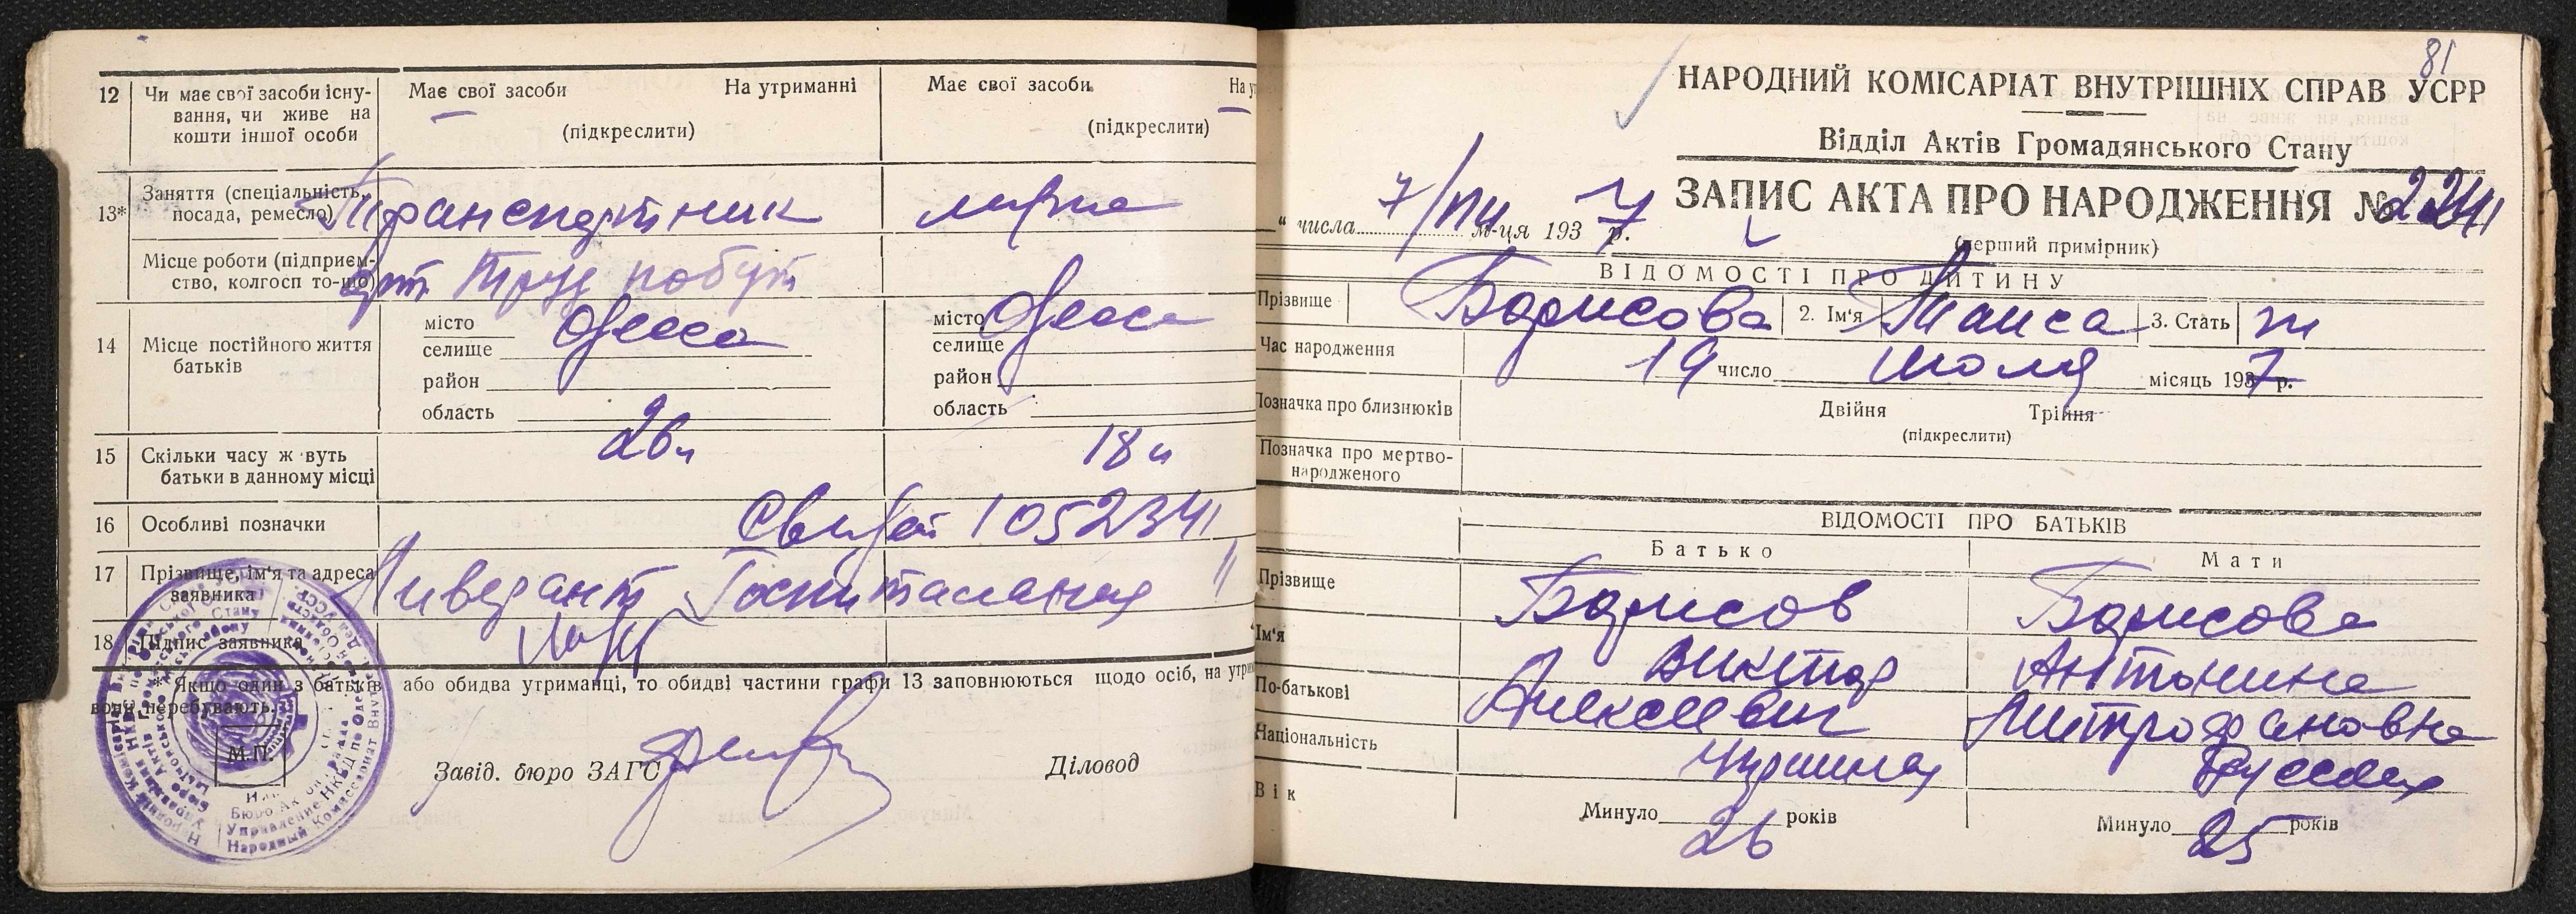 12 Чи має свої засоби існу-
вання, чи живе на
кошти іншої особи
Має свої засоби На утриманні
(підкреслити)
Має свої засоби На у
(підкреслити)
13* Заняття (спеціальність,
посада, ремесло)
Транспортник
Місце роботи (підприєм-
ство, колгосп то-що)
арт. Труд побут
14 Місце постійного життя
батьків
місто Одесса
селище
район
область
місто Одесса
селище
район
область
15 Скільки часу ж вуть
батьки в данному місці
26
18
16 Особливі позначки
Свидет 1052341
17 Прізвище, ім'я та адреса
заявника
Ливерант Госпитальная 11
18 Підпис заявника
* Якщо один з батьків або обидва утриманці, то обидві частини графи 13 заповнюються щодо осіб, на утри
вони перебувають.
М.П.
Завід. бюро ЗАГС
Діловод
81
НАРОДНИЙ КОМІСАРІАТ ВНУТРІШНІХ СПРАВ УСРР
Відділ Актів Громадянського Стану
ЗАПИС АКТА ПРО НАРОДЖЕННЯ № 2241
" числа 7/VIII м-ця 1937 р.
(перший примірник)
ВІДОМОСТІ ПРО ДИТИНУ
Прізвище Борисова 2. Ім'я Таиса 3. Стать ж
Час народження 19 число июля місяць 1937 р.
Позначка про близнюків Двійня Трійня
(підкреслити)
Позначка про мертво-
народженого
ВІДОМОСТІ ПРО БАТЬКІВ
Батько Мати
Прізвище Борисов Борисова
Ім'я Виктор Антонина
По-батькові Алексеевич Митрофановна
Національність Украинец Русская
Вік Минуло 26 років Минуло 25 років